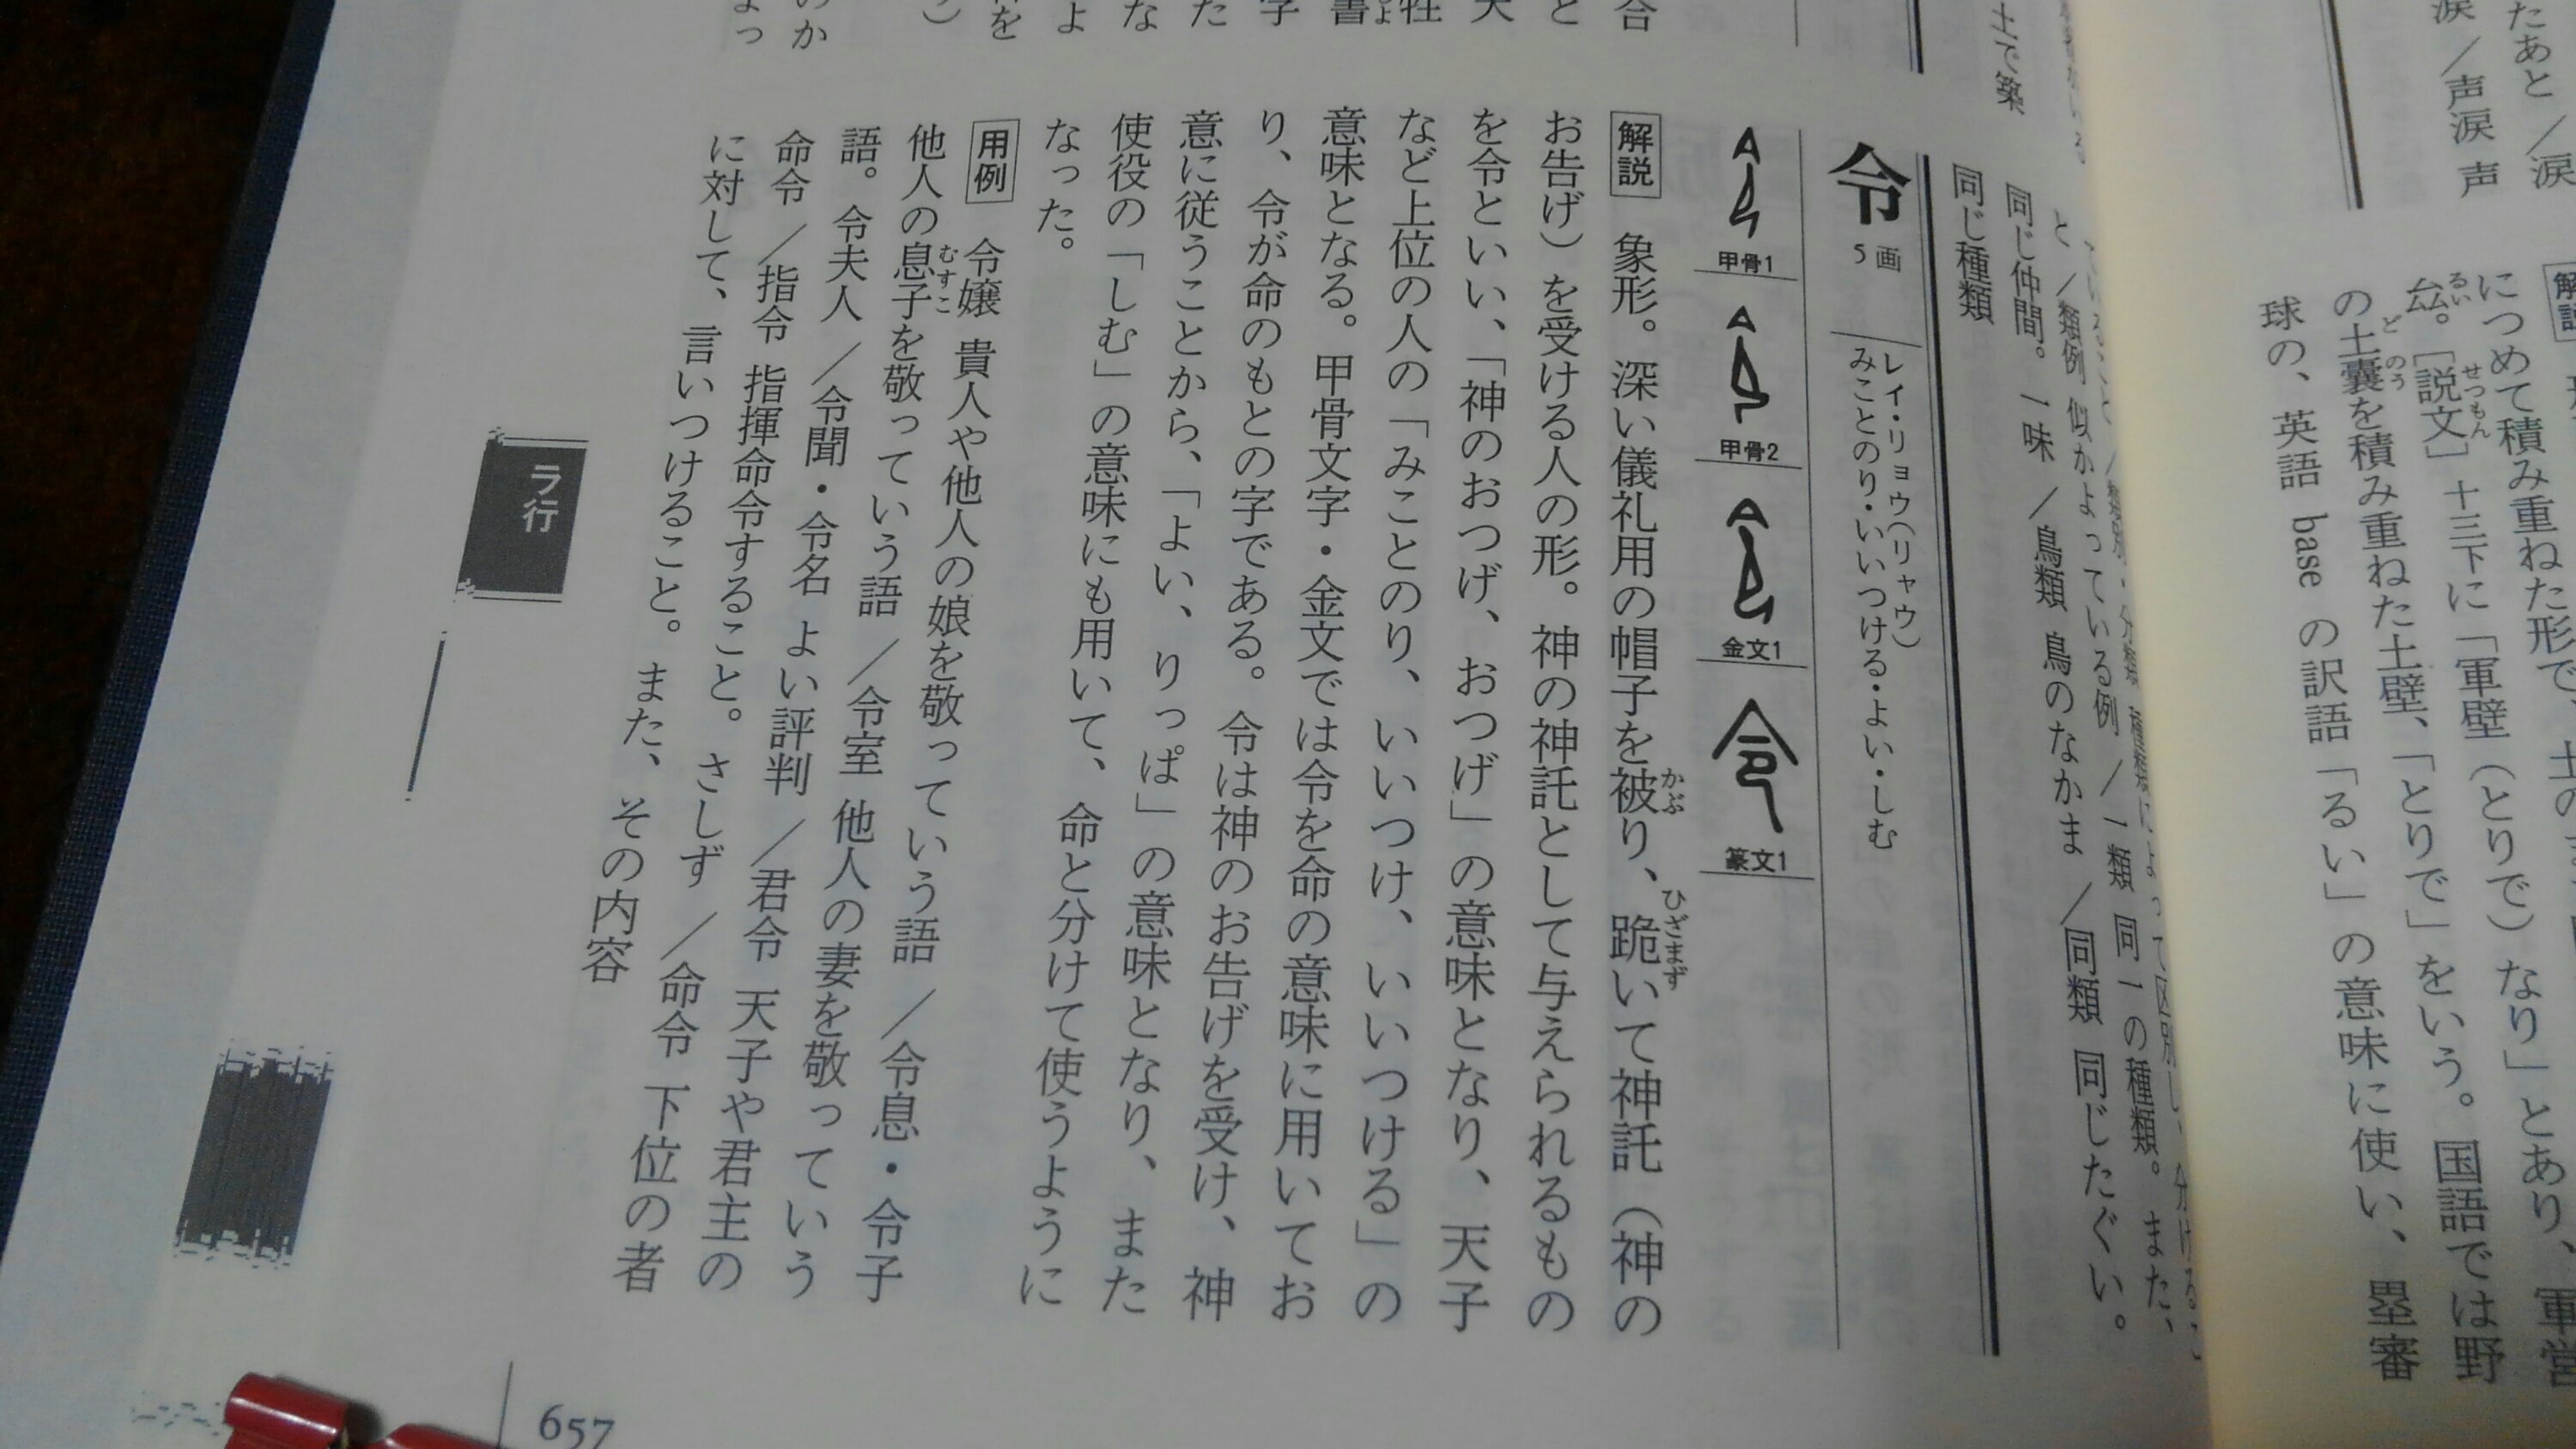 たあと／涙
涙／声涙 声
につめて積み重ねた形で、土の
厽。［説文］十三下に「軍壁（とりで）なり」とあり、軍営
の土囊を積み重ねた土壁、「とりで」をいう。国語では野
球の、英語 base の訳語「るい」の意味に使い、塁審
土で築
と／類例 似かよっている例／一類 同一の種類。また、
同じ仲間。一味／鳥類 鳥のなかま／同類 同じたぐい。
同じ種類
令 5画
レイ・リョウ（リャウ）
みことのり・いいつける・よい・しむ
甲骨1
甲骨2
金文1
篆文1
解説 象形。深い儀礼用の帽子を被り、跪いて神託（神の
かぶ
ひざまず
お告げ）を受ける人の形。神の神託として与えられるもの
を令といい、「神のおつげ、おつげ」の意味となり、天子
など上位の人の「みことのり、いいつけ、いいつける」の
意味となる。甲骨文字・金文では令を命の意味に用いてお
り、令が命のもとの字である。令は神のお告げを受け、神
意に従うことから、「よい、りっぱ」の意味となり、また
使役の「しむ」の意味にも用いて、命と分けて使うように
なった。
用例 令嬢 貴人や他人の娘を敬っていう語／令息・令子
他人の息子を敬っていう語／令室 他人の妻を敬っていう
むすこ
語。令夫人／令聞・令名 よい評判／君令 天子や君主の
命令／指令 指揮命令すること。さしず／命令 下位の者
に対して、言いつけること。また、その内容
ラ行
657